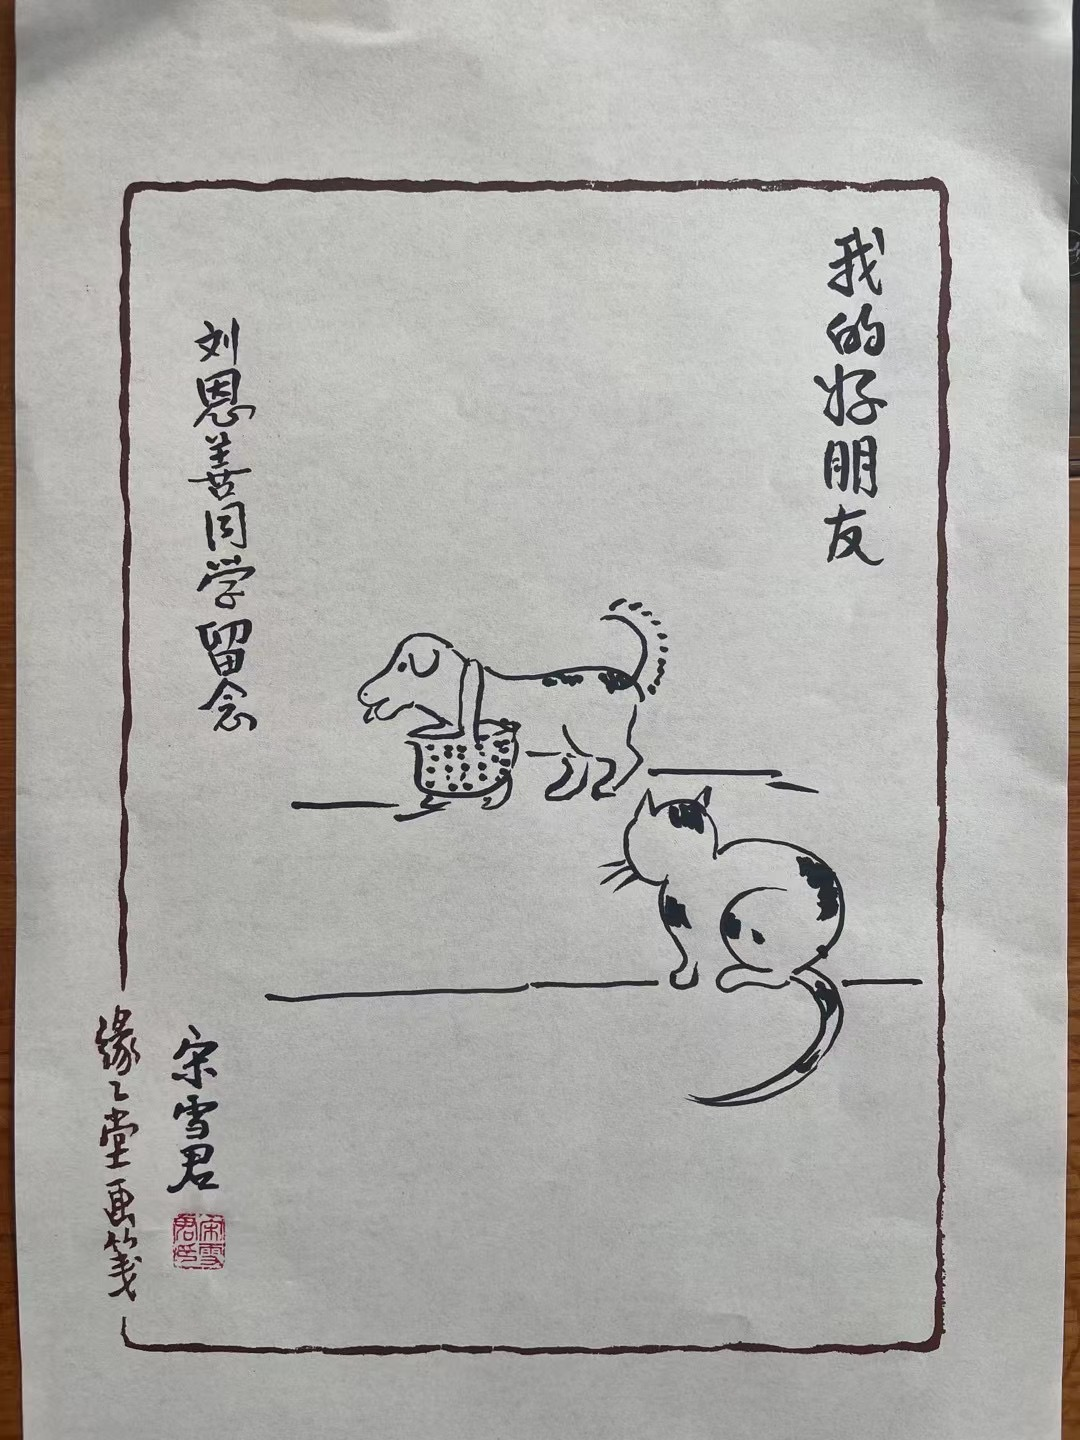 我的好朋友
刘恩善同学留念
宋雪君
宋雪君印
缘之堂画笺